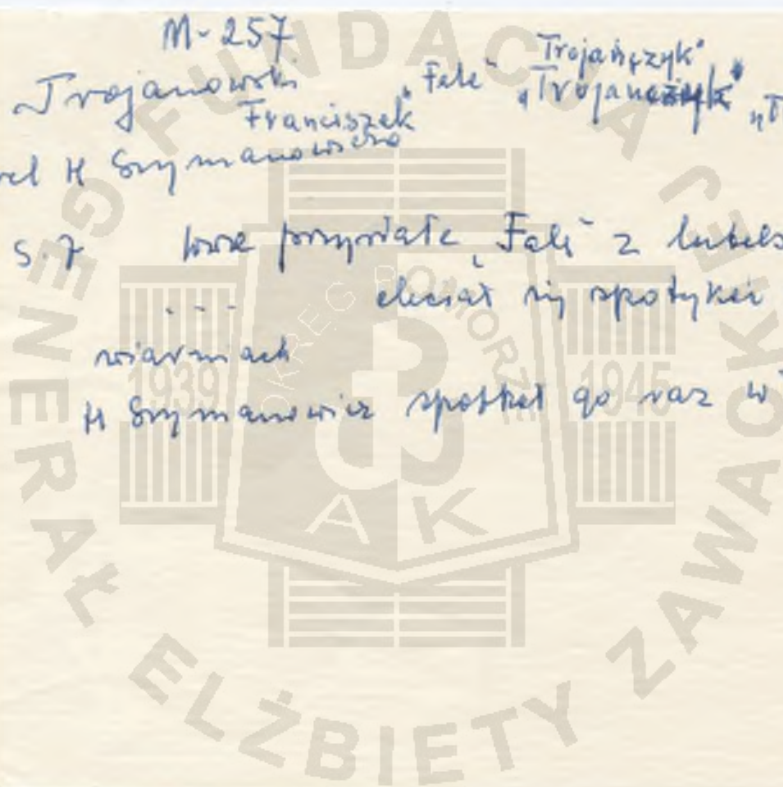 M-257
Trojanowski „Fala" Trojańczyk"
Franciszek „Trojańczyk" „T
rel H Szymanowicza
s. 7 przysłała „Falę" z lubels
... chciał się spotykać
wiarniach
H Szymanowicz spotkał go raz w
FUNDACJA GENERAŁ ELŻBIETY ZAWACKIEJ
OKRĘG POMORZE
1939 1945
AK